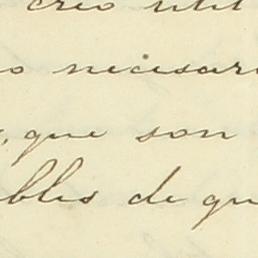 creo util
o necesari
, que son
bles de qu